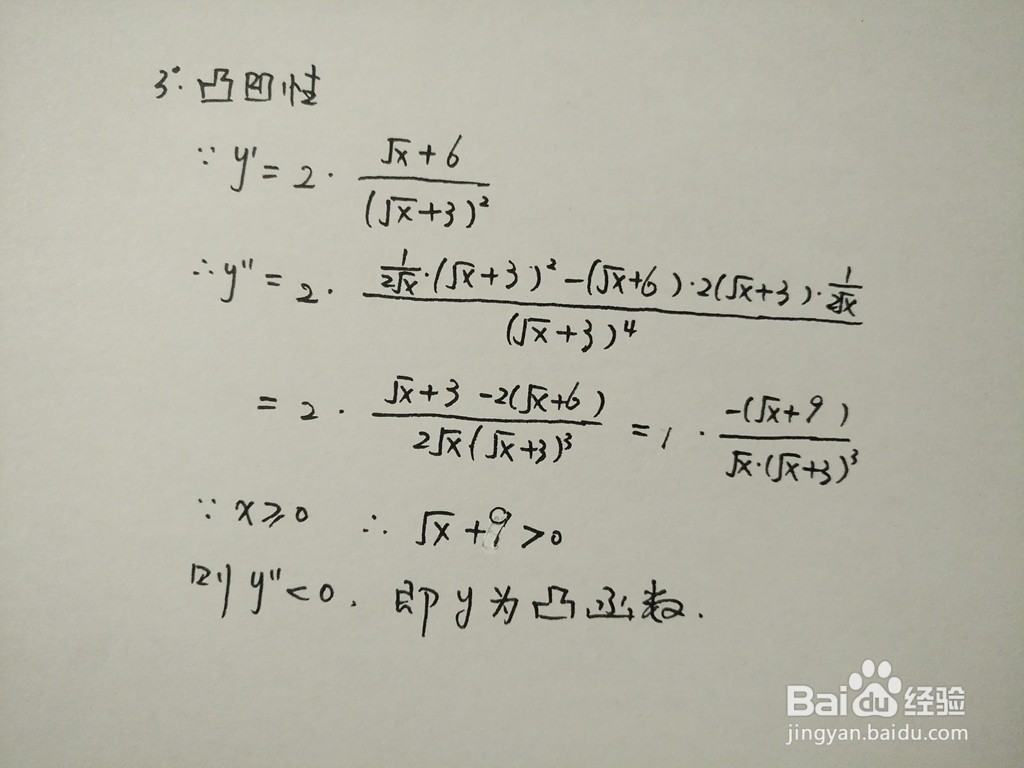 3°. 凸凹性
∵ y' = 2 · (√x + 6) / (√x + 3)²
∴ y'' = 2 · [1/(2√x) · (√x + 3)² − (√x + 6) · 2(√x + 3) · 1/(2√x)] / (√x + 3)⁴
= 2 · [√x + 3 − 2(√x + 6)] / [2√x(√x + 3)³] = 1 · −(√x + 9) / [√x · (√x + 3)³]
∵ x ≥ 0 ∴ √x + 9 > 0
则 y'' < 0. 即 y 为凸函数.
Baidu 经验
jingyan.baidu.com